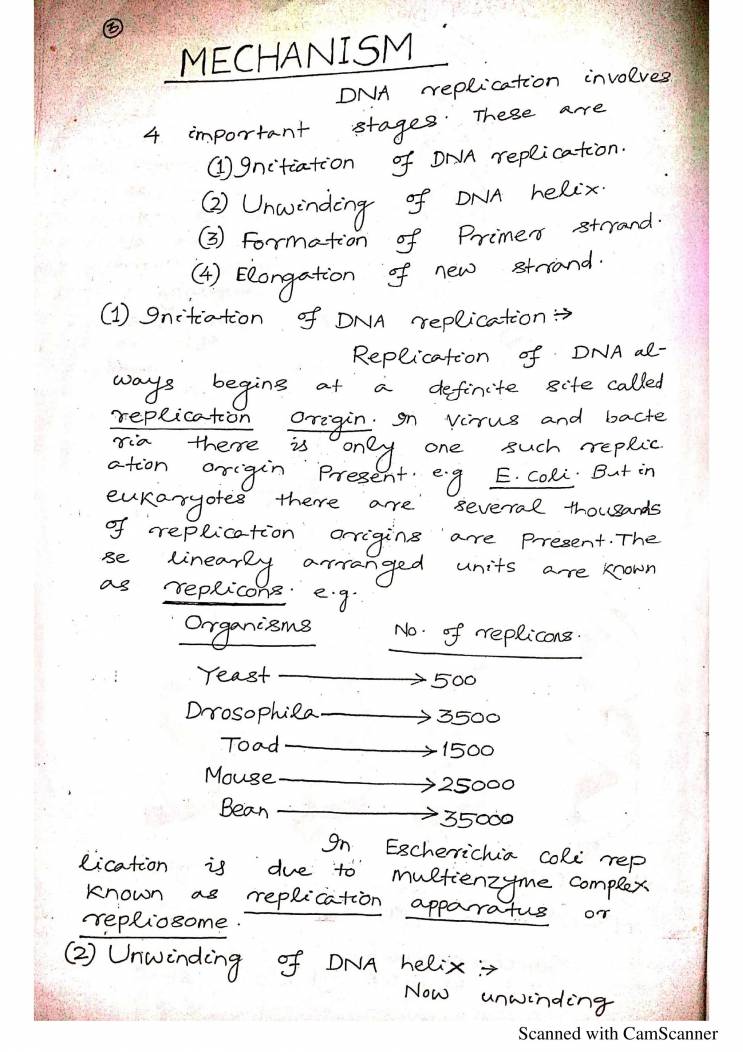 3
MECHANISM
DNA replication involves
4 important stages. These are
(1) Initiation of DNA replication.
(2) Unwinding of DNA helix.
(3) Formation of Primer strand.
(4) Elongation of new strand.
(1) Initiation of DNA replication :→
Replication of DNA al-
ways begins at a definite site called
replication origin. In virus and bacte
ria there is only one such replic
ation origin Present. e.g E. coli. But in
eukaryotes there are several thousands
of replication origins are Present. The
se linearly arranged units are known
as replicons. e.g.
Organisms No. of replicons.
Yeast → 500
Drosophila → 3500
Toad → 1500
Mouse → 25000
Bean → 35000
In Escherichia coli rep
lication is due to multienzyme complex
known as replication apparatus or
repliosome.
(2) Unwinding of DNA helix :→
Now unwinding
Scanned with CamScanner